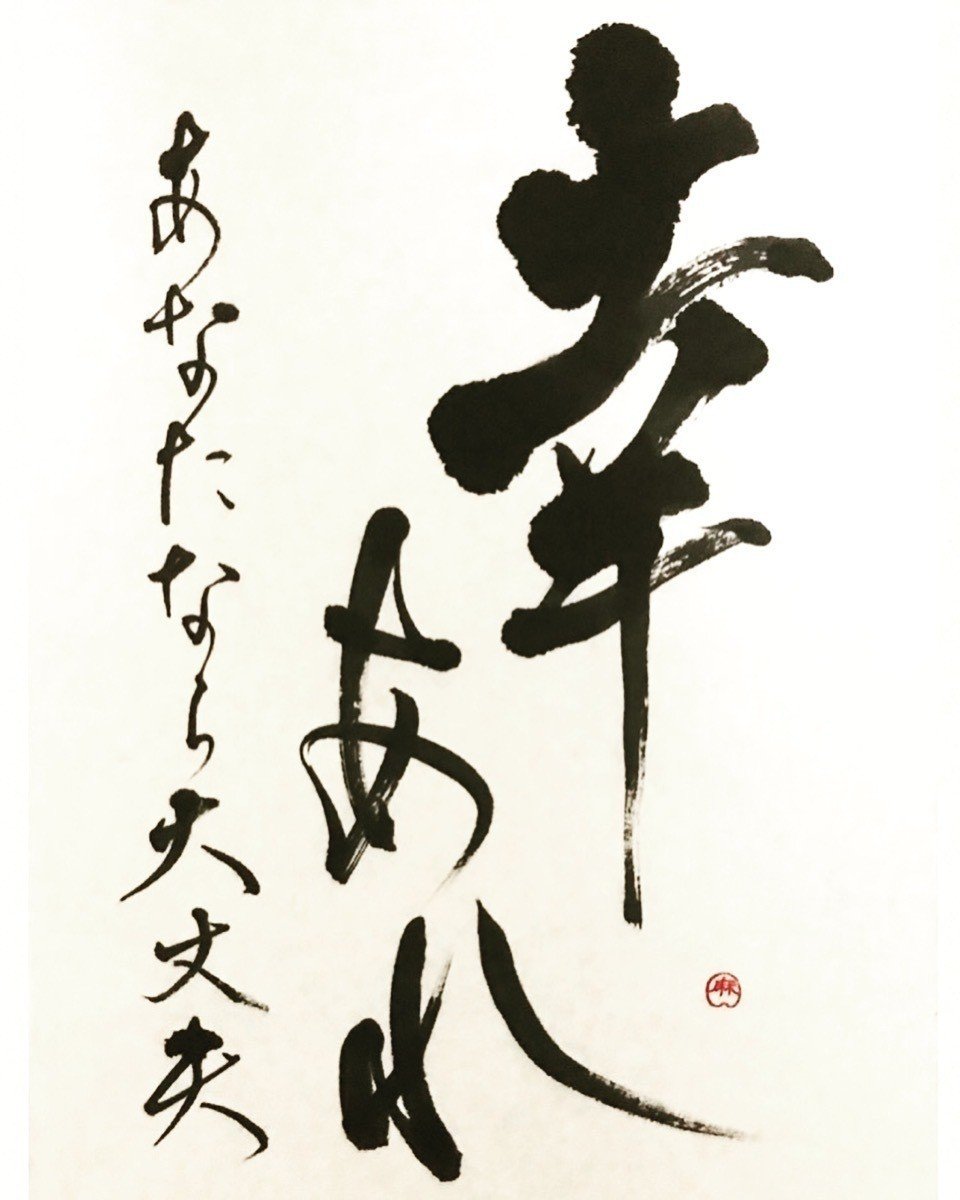 幸
あれ
あなたなら大丈夫
麻